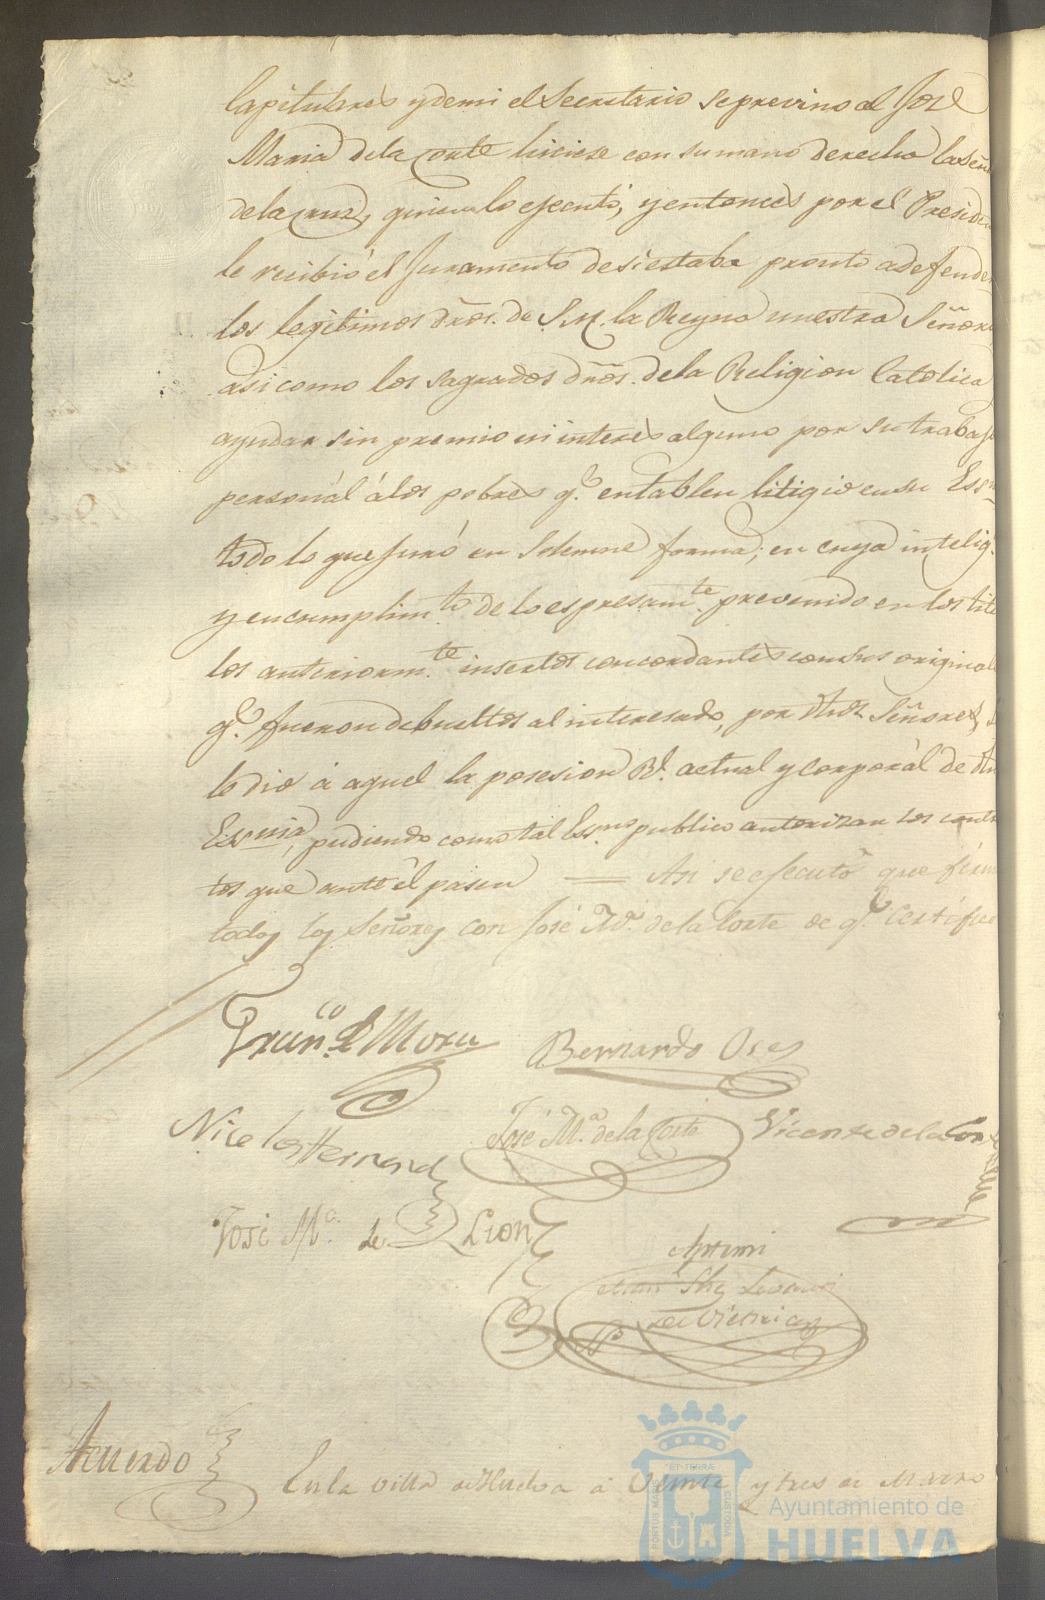 Capitulares y demi el Secretario se previno al José
Maria dela Corte hiciese con su mano derecha la señ
dela cruz, quien lo ejecutó, y entonces por el Presiden
le recibió el Juramento de si estaba pronto a defender
los legitimos dros. de S.M. la Reyna nuestra Señora
asi como los sagrados dros. dela Religion Catolica
ayudar sin premio ni interes alguno por su trabajo
personál á los pobres q.e entablen litigio en su Esp
todo lo que juró en solemne forma; en cuya intelig.
y en cumplim.to de lo espresam.te prevenido en los titu
los anteriorm.te insertos concordantes con sus original
q.e fueron debueltos al interesado, por dhos Señores, s
le dio á aquel la posesion Rl. actual y corporál de dh
Essnia, pudiendo como tal Es.no publico autorizar los contra
tos que ante él pasen = Asi se ejecutó que firm
todos los Señores con José M.a de la Corte de q.e Certifico
Fran.co de Mora
Bernardo Oses
Nicolas Hernand
José M.a de la Corte
Vicente de la Cor
José M.a de Leon
Antemi
Acuerdo
En la villa de Huelva á Veinte y tres de Marzo
PORTUS MARIS ET TERRÆ CUSTODIA
Ayuntamiento de
HUELVA